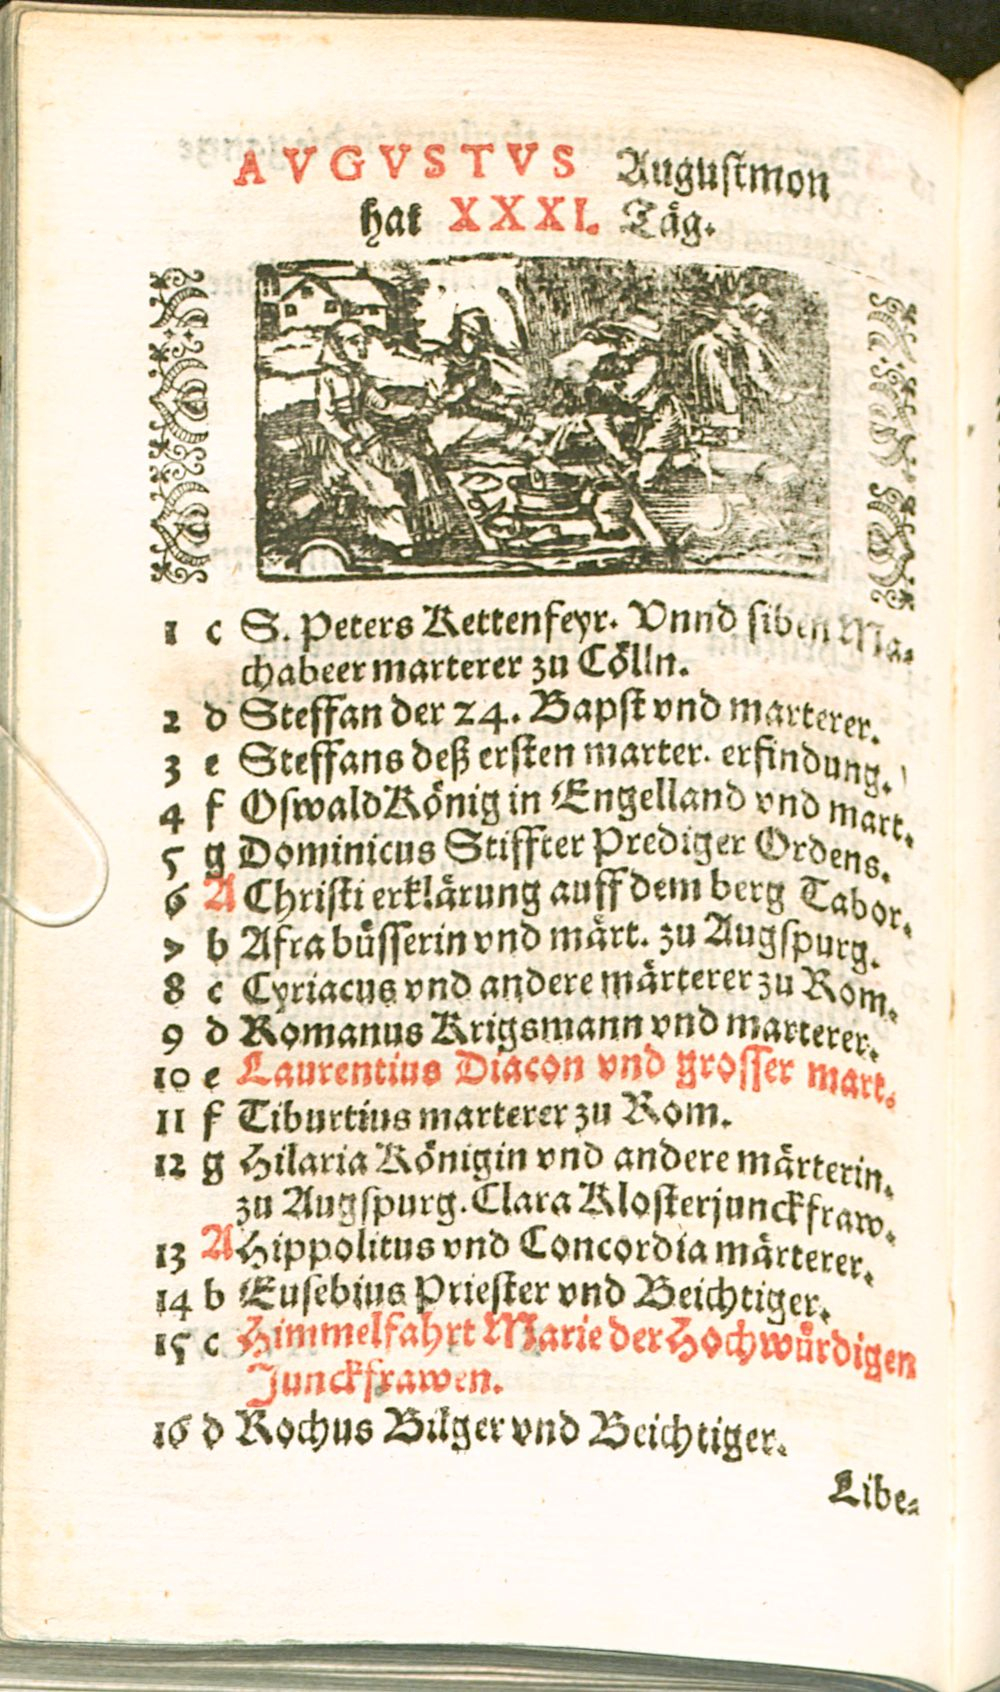 AVGVSTVS Augustmon
hat XXXI. Täg.
1 c S. Peters Kettenfeyr. Vnnd siben Ma⸗
chabeer marterer zu Cölln.
2 d Steffan der 24. Bapst vnd marterer.
3 e Steffans deß ersten marter. erfindung.
4 f Oswald König in Engelland vnd mart.
5 g Dominicus Stiffter Prediger Ordens.
6 A Christi erklärung auff dem berg Tabor.
7 b Afra büsserin vnd märt. zu Augspurg.
8 c Cyriacus vnd andere märterer zu Rom.
9 d Romanus Krigsmann vnd marterer.
10 e Laurentius Diacon vnd grosser mart.
11 f Tiburtius marterer zu Rom.
12 g Hilaria Königin vnd andere märterin.
zu Augspurg. Clara Klosterjunckfraw.
13 A Hippolitus vnd Concordia märterer.
14 b Eusebius Priester vnd Beichtiger.
15 c Himmelfahrt Marie der Hochwürdigen
Junckfrawen.
16 d Rochus Bilger vnd Beichtiger.
Libe⸗